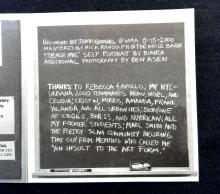 RECORDED BY JEFF GOEGEL @ WMA 8-15-2000
MASTERED BY NICK RANDOLPH @ THE NOISE BARN
"TEACH ME" SELF PORTRAIT BY BIANCA
ADDITIONAL PHOTOGRAPHY BY BEN ASEN
THANKS TO REBECCA & APOLLO; MY NYC-
URBANA 2000 TEAMMATES BEAU, NOEL, AND
CELENA; CRISTIN, MORRIS, AMANDA, FRANK,
YOLANDA AND ALL URBANITES; EVERYONE
AT CBGB'S, BAR 13, AND NUYORICAN; ALL
MY FORMER STUDENTS; MARC SMITH AND
THE POETRY SLAM COMMUNITY INCLUDING
THAT GUY FROM MEMPHIS WHO CALLED ME
"AN INSULT TO THE ART FORM."